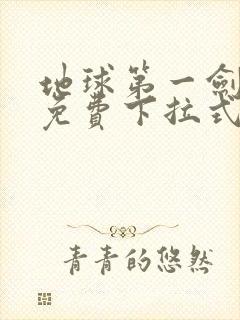 地球第一劍
免費下拉式
青青的悠然